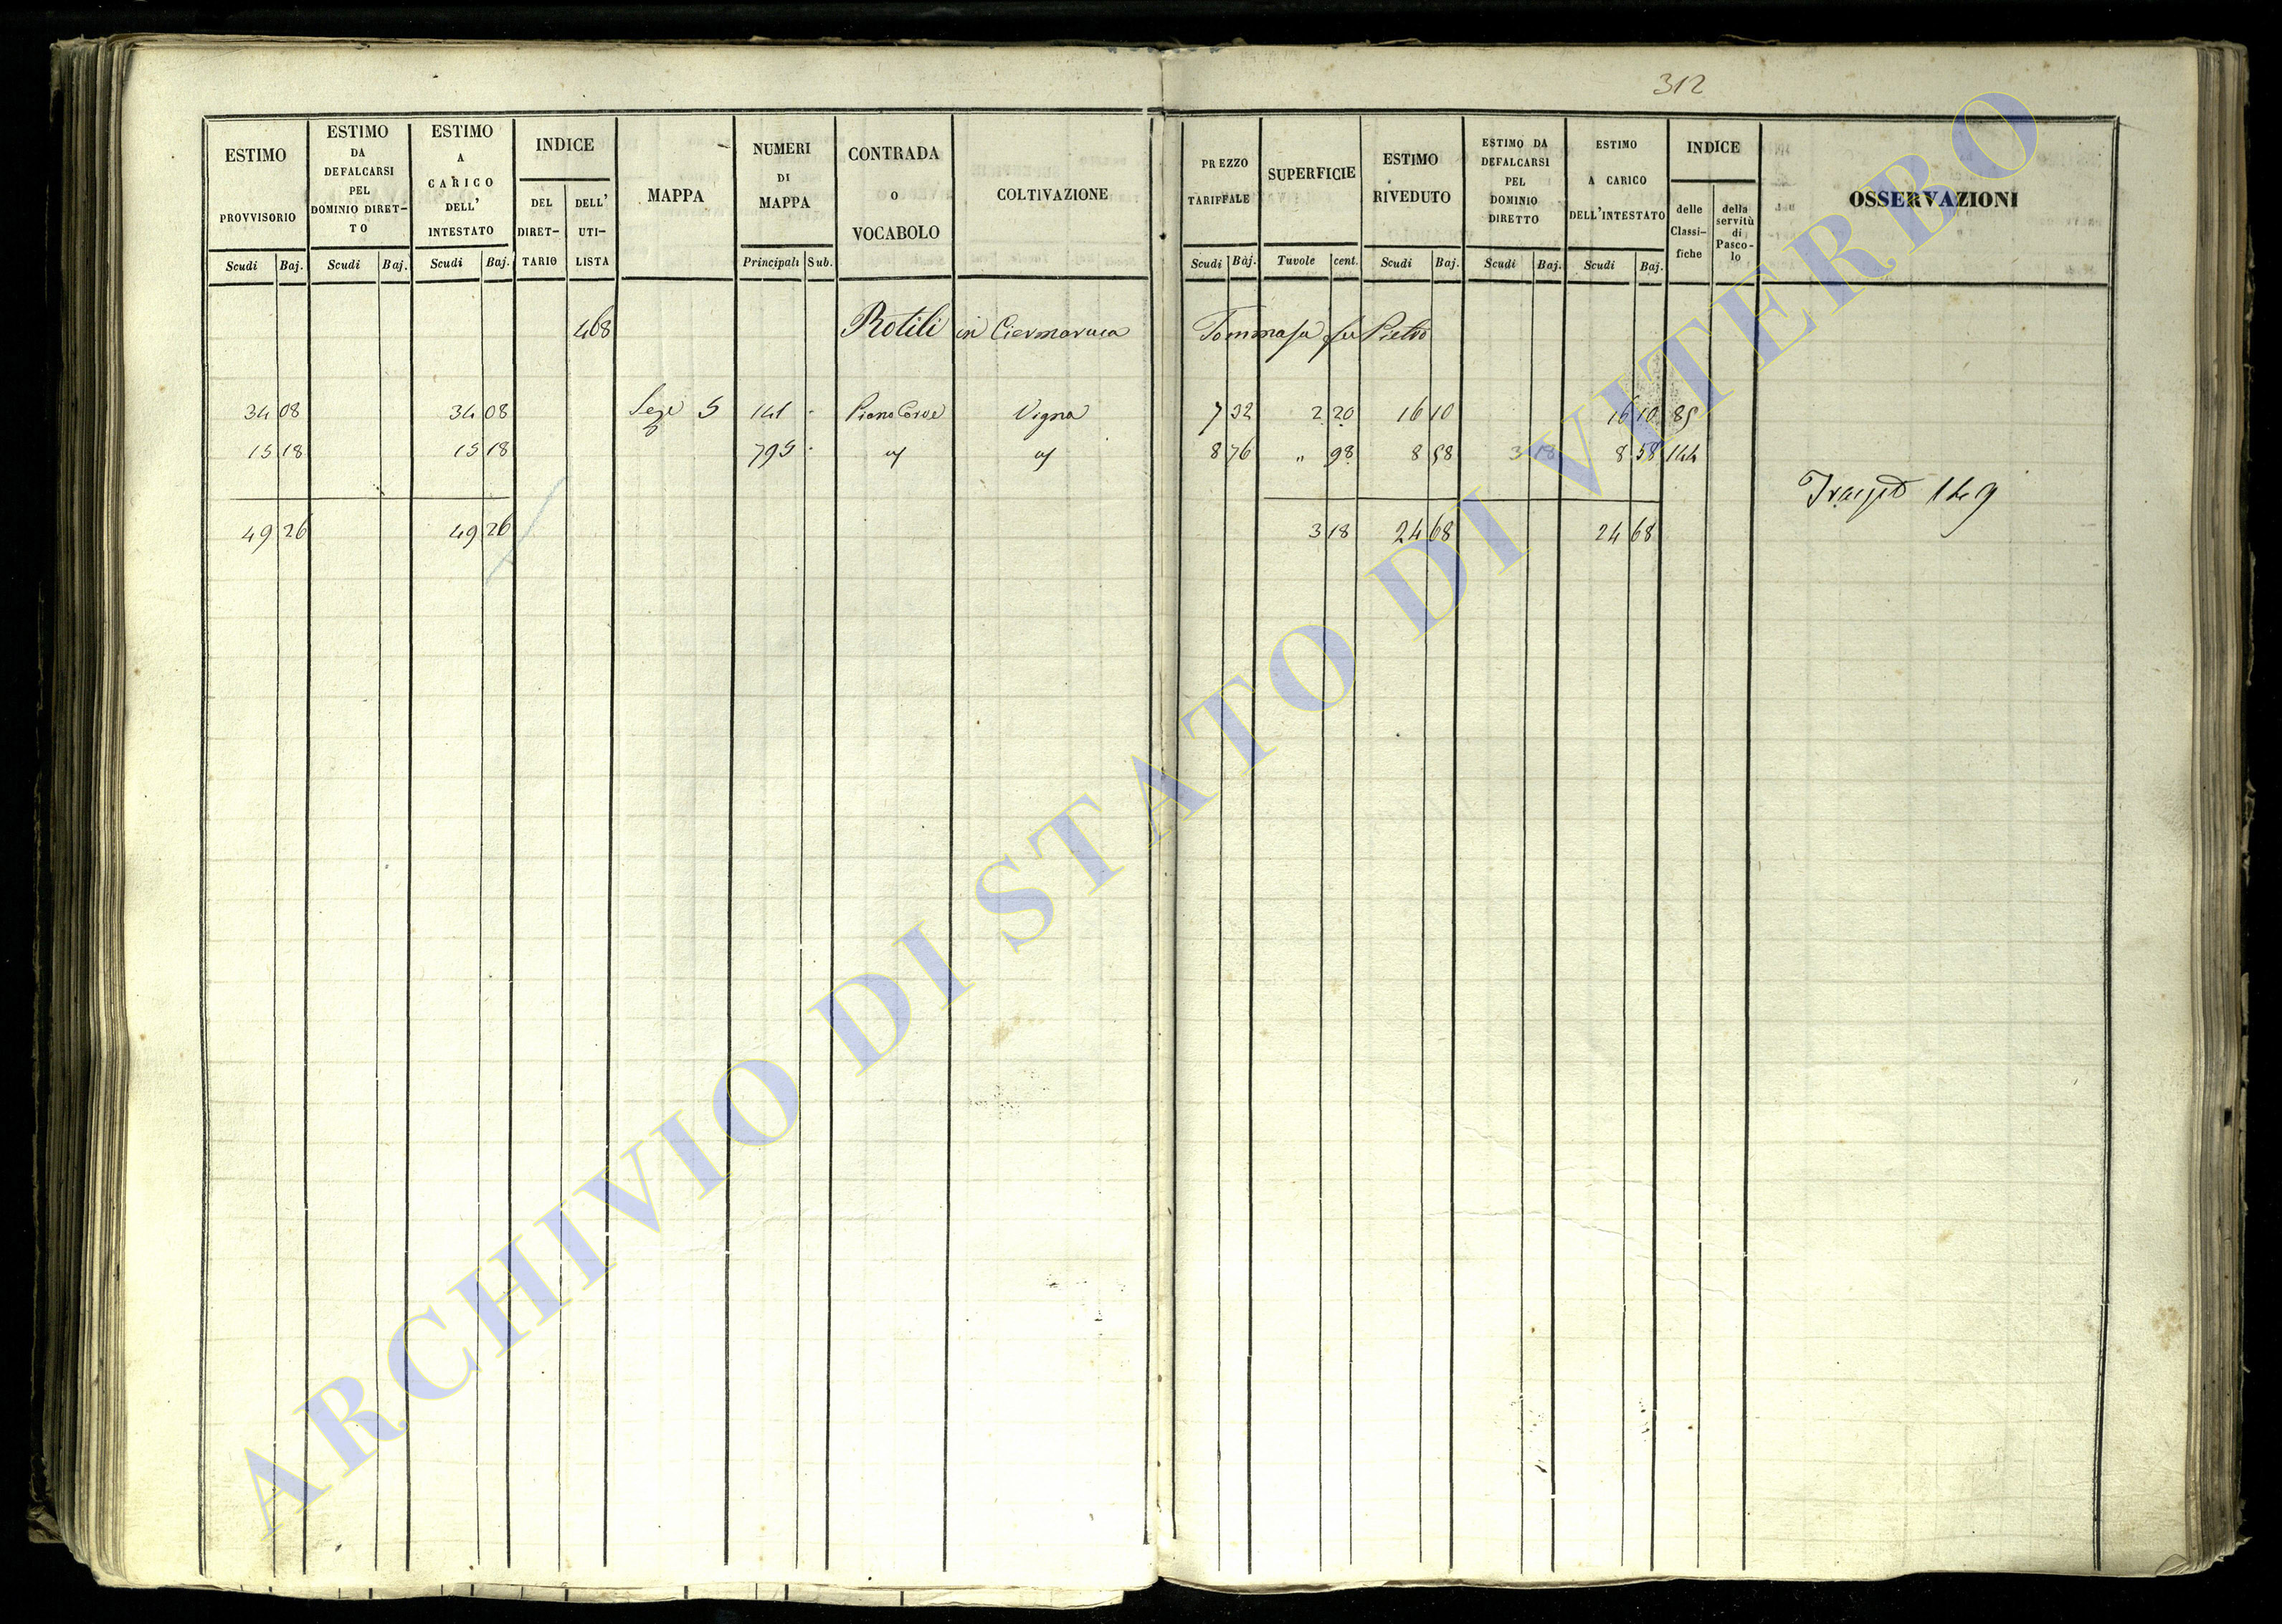 312
ESTIMO PROVVISORIO
Scudi Baj.
ESTIMO DA DEFALCARSI PEL DOMINIO DIRET-TO
Scudi Baj.
ESTIMO A CARICO DELL' INTESTATO
Scudi Baj.
INDICE
DEL DIRET-TARIO
DELL' UTI-LISTA
MAPPA
NUMERI DI MAPPA
Principali Sub.
CONTRADA o VOCABOLO
COLTIVAZIONE
PREZZO TARIFFALE
Scudi Baj.
SUPERFICIE
Tavole cent.
ESTIMO RIVEDUTO
Scudi Baj.
ESTIMO DA DEFALCARSI PEL DOMINIO DIRETTO
Scudi Baj.
ESTIMO A CARICO DELL'INTESTATO
Scudi Baj.
INDICE
delle Classi-fiche
della servitù di Pasco-lo
OSSERVAZIONI
468 Rotili in Tommasa fu Pietro
34 08 34 08 Seze 5 141 Vigna 7 32 2 20 16 10 16 10 85
15 18 15 18 795 8 76 " 98 8 58 3 18 8 58 144
49 26 49 26 3 18 24 68 24 68
ARCHIVIO DI STATO DI VITERBO